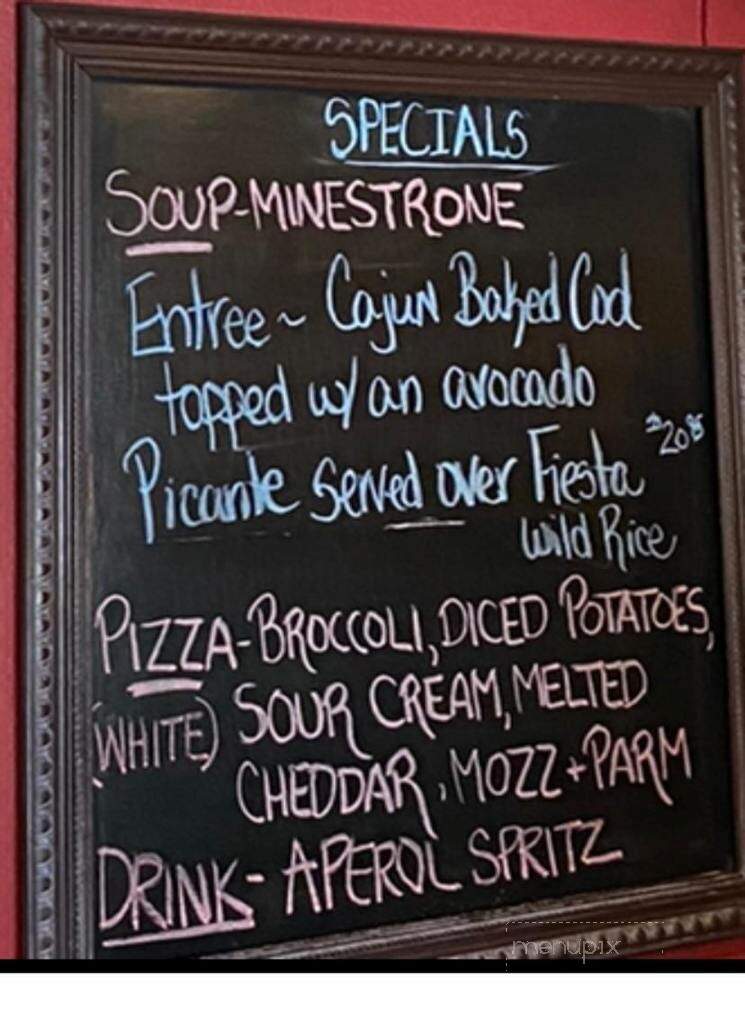 SPECIALS
SOUP-MINESTRONE
Entree~ Cajun Baked Cod
topped w/ an avocado
Picante served over Fiesta $20.95
Wild Rice
PIZZA-BROCCOLI, DICED POTATOES,
(WHITE) SOUR CREAM, MELTED
CHEDDAR, MOZZ+PARM
DRINK- APEROL SPRITZ
menupix